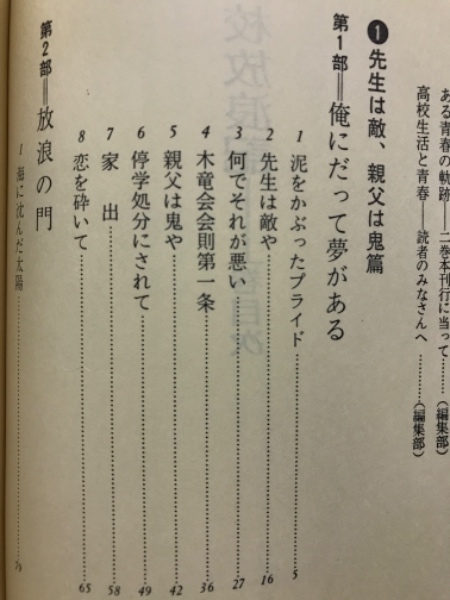 ある青春の軌跡――二巻本刊行に当って………(編集部)
高校生活と青春――読者のみなさんへ………(編集部)
❶先生は敵、親父は鬼篇
第1部=俺にだって夢がある
1 泥をかぶったプライド………5
2 先生は敵や………16
3 何でそれが悪い………27
4 木竜会会則第一条………36
5 親父は鬼や………42
6 停学処分にされて………49
7 家 出………58
8 恋を砕いて………65
第2部=放浪の門
1 海に沈んだ太陽………